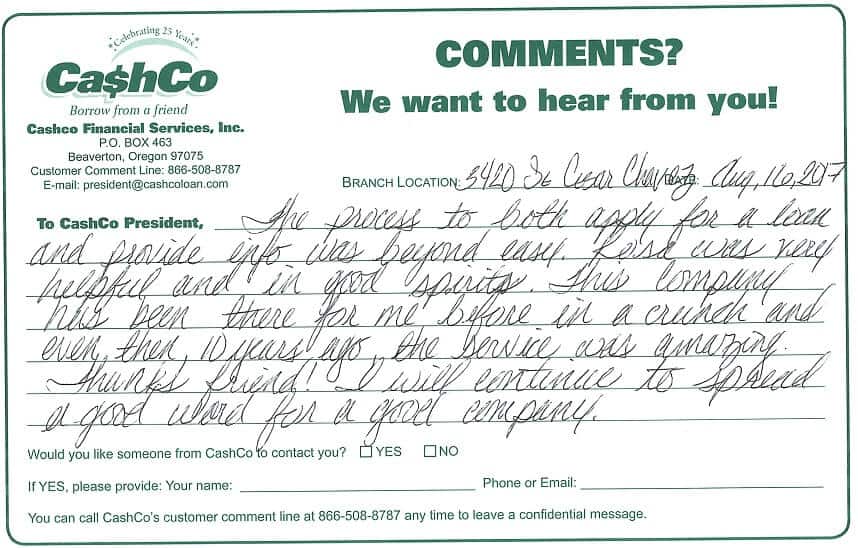 Celebrating 25 Years
Ca$hCo
Borrow from a friend
Cashco Financial Services, Inc.
P.O. BOX 463
Beaverton, Oregon 97075
Customer Comment Line: 866-508-8787
E-mail: president@cashcoloan.com
COMMENTS?
We want to hear from you!
BRANCH LOCATION: 3420 Se Cesar Chavez DATE: Aug, 16, 2017
To CashCo President, The process to both apply for a loan
and provide info was beyond easy. Rosa was very
helpful and in good spirits. This company
has been there for me before in a crunch and
even then, 10 years ago, the service was amazing.
Thanks friend! I will continue to spread
a good word for a good company.
Would you like someone from CashCo to contact you? YES NO
If YES, please provide: Your name: Phone or Email:
You can call CashCo's customer comment line at 866-508-8787 any time to leave a confidential message.